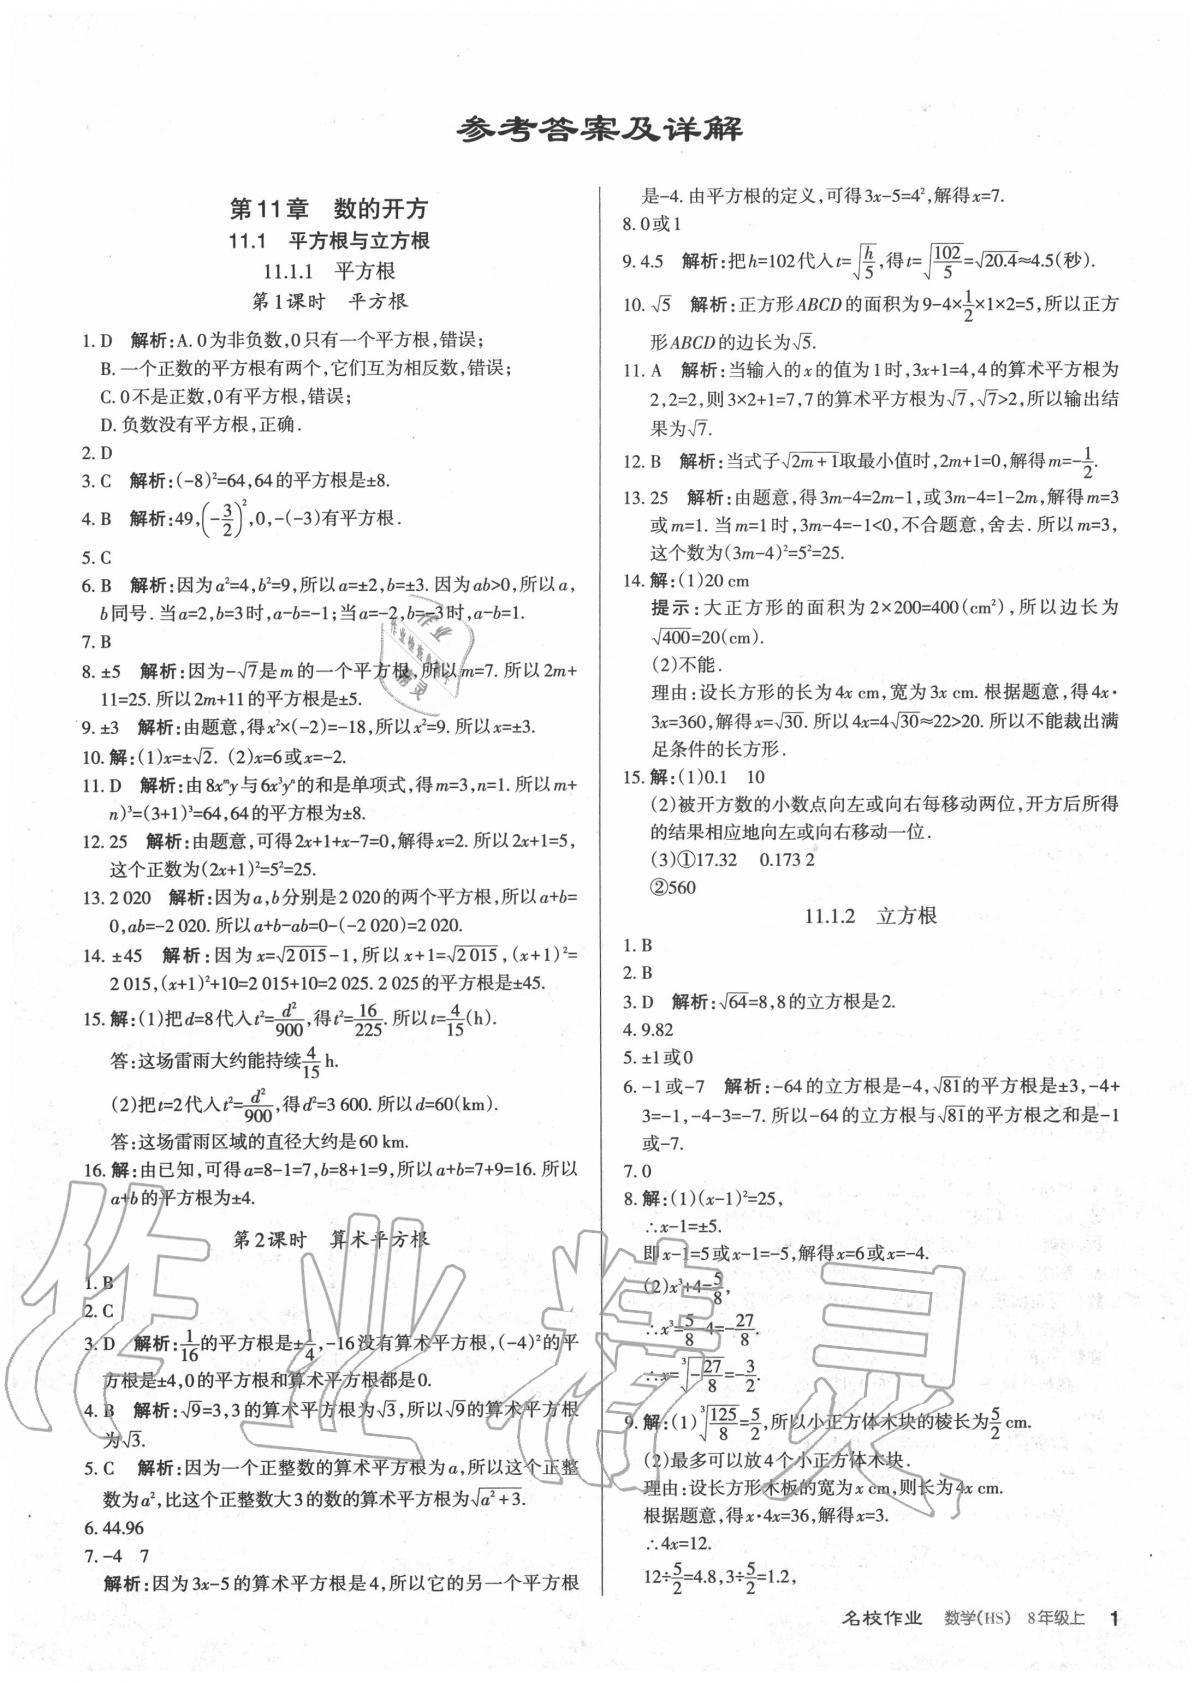 参考答案及详解
第11章 数的开方
11.1 平方根与立方根
11.1.1 平方根
第1课时 平方根
1. D 解析:A. 0为非负数,0只有一个平方根,错误;
B. 一个正数的平方根有两个,它们互为相反数,错误;
C. 0不是正数,0有平方根,错误;
D. 负数没有平方根,正确.
2. D
3. C 解析:(-8)²=64,64的平方根是±8.
4. B 解析:49,(-3/2)²,0,-(-3)有平方根.
5. C
6. B 解析:因为a²=4,b²=9,所以a=±2,b=±3. 因为ab>0,所以a,
b同号. 当a=2,b=3时,a-b=-1;当a=-2,b=-3时,a-b=1.
7. B
8. ±5 解析:因为-√7是m的一个平方根,所以m=7. 所以2m+
11=25. 所以2m+11的平方根是±5.
9. ±3 解析:由题意,得x²×(-2)=-18,所以x²=9. 所以x=±3.
10. 解:(1)x=±√2. (2)x=6或x=-2.
11. D 解析:由8xᵐy与6x³yⁿ的和是单项式,得m=3,n=1. 所以(m+
n)³=(3+1)³=64,64的平方根为±8.
12. 25 解析:由题意,可得2x+1+x-7=0,解得x=2. 所以2x+1=5,
这个正数为(2x+1)²=5²=25.
13. 2 020 解析:因为a,b分别是2 020的两个平方根,所以a+b=
0,ab=-2 020. 所以a+b-ab=0-(-2 020)=2 020.
14. ±45 解析:因为x=√2 015-1,所以x+1=√2 015,(x+1)²=
2 015,(x+1)²+10=2 015+10=2 025. 2 025的平方根是±45.
15. 解:(1)把d=8代入t²=d²/900,得t²=16/225. 所以t=4/15(h).
答:这场雷雨大约能持续4/15 h.
(2)把t=2代入t²=d²/900,得d²=3 600. 所以d=60(km).
答:这场雷雨区域的直径大约是60 km.
16. 解:由已知,可得a=8-1=7,b=8+1=9,所以a+b=7+9=16. 所以
a+b的平方根为±4.
第2课时 算术平方根
1. B
2. C
3. D 解析:1/16的平方根是±1/4,-16没有算术平方根,(-4)²的平
方根是±4,0的平方根和算术平方根都是0.
4. B 解析:√9=3,3的算术平方根为√3,所以√9的算术平方根
为√3.
5. C 解析:因为一个正整数的算术平方根为a,所以这个正整
数为a²,比这个正整数大3的数的算术平方根为√(a²+3).
6. 44.96
7. -4 7
解析:因为3x-5的算术平方根是4,所以它的另一个平方根
是-4. 由平方根的定义,可得3x-5=4²,解得x=7.
8. 0或1
9. 4.5 解析:把h=102代入t=√(h/5),得t=√(102/5)=√20.4≈4.5(秒).
10. √5 解析:正方形ABCD的面积为9-4×1/2×1×2=5,所以正方
形ABCD的边长为√5.
11. A 解析:当输入的x的值为1时,3x+1=4,4的算术平方根为
2,2=2,则3×2+1=7,7的算术平方根为√7,√7>2,所以输出结
果为√7.
12. B 解析:当式子√(2m+1)取最小值时,2m+1=0,解得m=-1/2.
13. 25 解析:由题意,得3m-4=2m-1,或3m-4=1-2m,解得m=3
或m=1. 当m=1时,3m-4=-1<0,不合题意,舍去. 所以m=3,
这个数为(3m-4)²=5²=25.
14. 解:(1)20 cm
提示:大正方形的面积为2×200=400(cm²),所以边长为
√400=20(cm).
(2)不能.
理由:设长方形的长为4x cm,宽为3x cm. 根据题意,得4x·
3x=360,解得x=√30. 所以4x=4√30≈22>20. 所以不能裁出满
足条件的长方形.
15. 解:(1)0.1 10
(2)被开方数的小数点向左或向右每移动两位,开方后所得
的结果相应地向左或向右移动一位.
(3)①17.32 0.173 2
②560
11.1.2 立方根
1. B
2. B
3. D 解析:√64=8,8的立方根是2.
4. 9.82
5. ±1或0
6. -1或-7 解析:-64的立方根是-4,√81的平方根是±3,-4+
3=-1,-4-3=-7. 所以-64的立方根与√81的平方根之和是-1
或-7.
7. 0
8. 解:(1)(x-1)²=25,
∴x-1=±5.
即x-1=5或x-1=-5,解得x=6或x=-4.
(2)x³+4=5/8,
∴x³=5/8-4=-27/8.
∴x=³√(-27/8)=-3/2.
9. 解:(1)³√(125/8)=5/2,所以小正方体木块的棱长为5/2 cm.
(2)最多可以放4个小正方体木块.
理由:设长方形木板的宽为x cm,则长为4x cm.
根据题意,得x·4x=36,解得x=3.
∴4x=12.
12÷5/2=4.8,3÷5/2=1.2,
名校作业 数学(HS) 8年级上 1
作业精灵